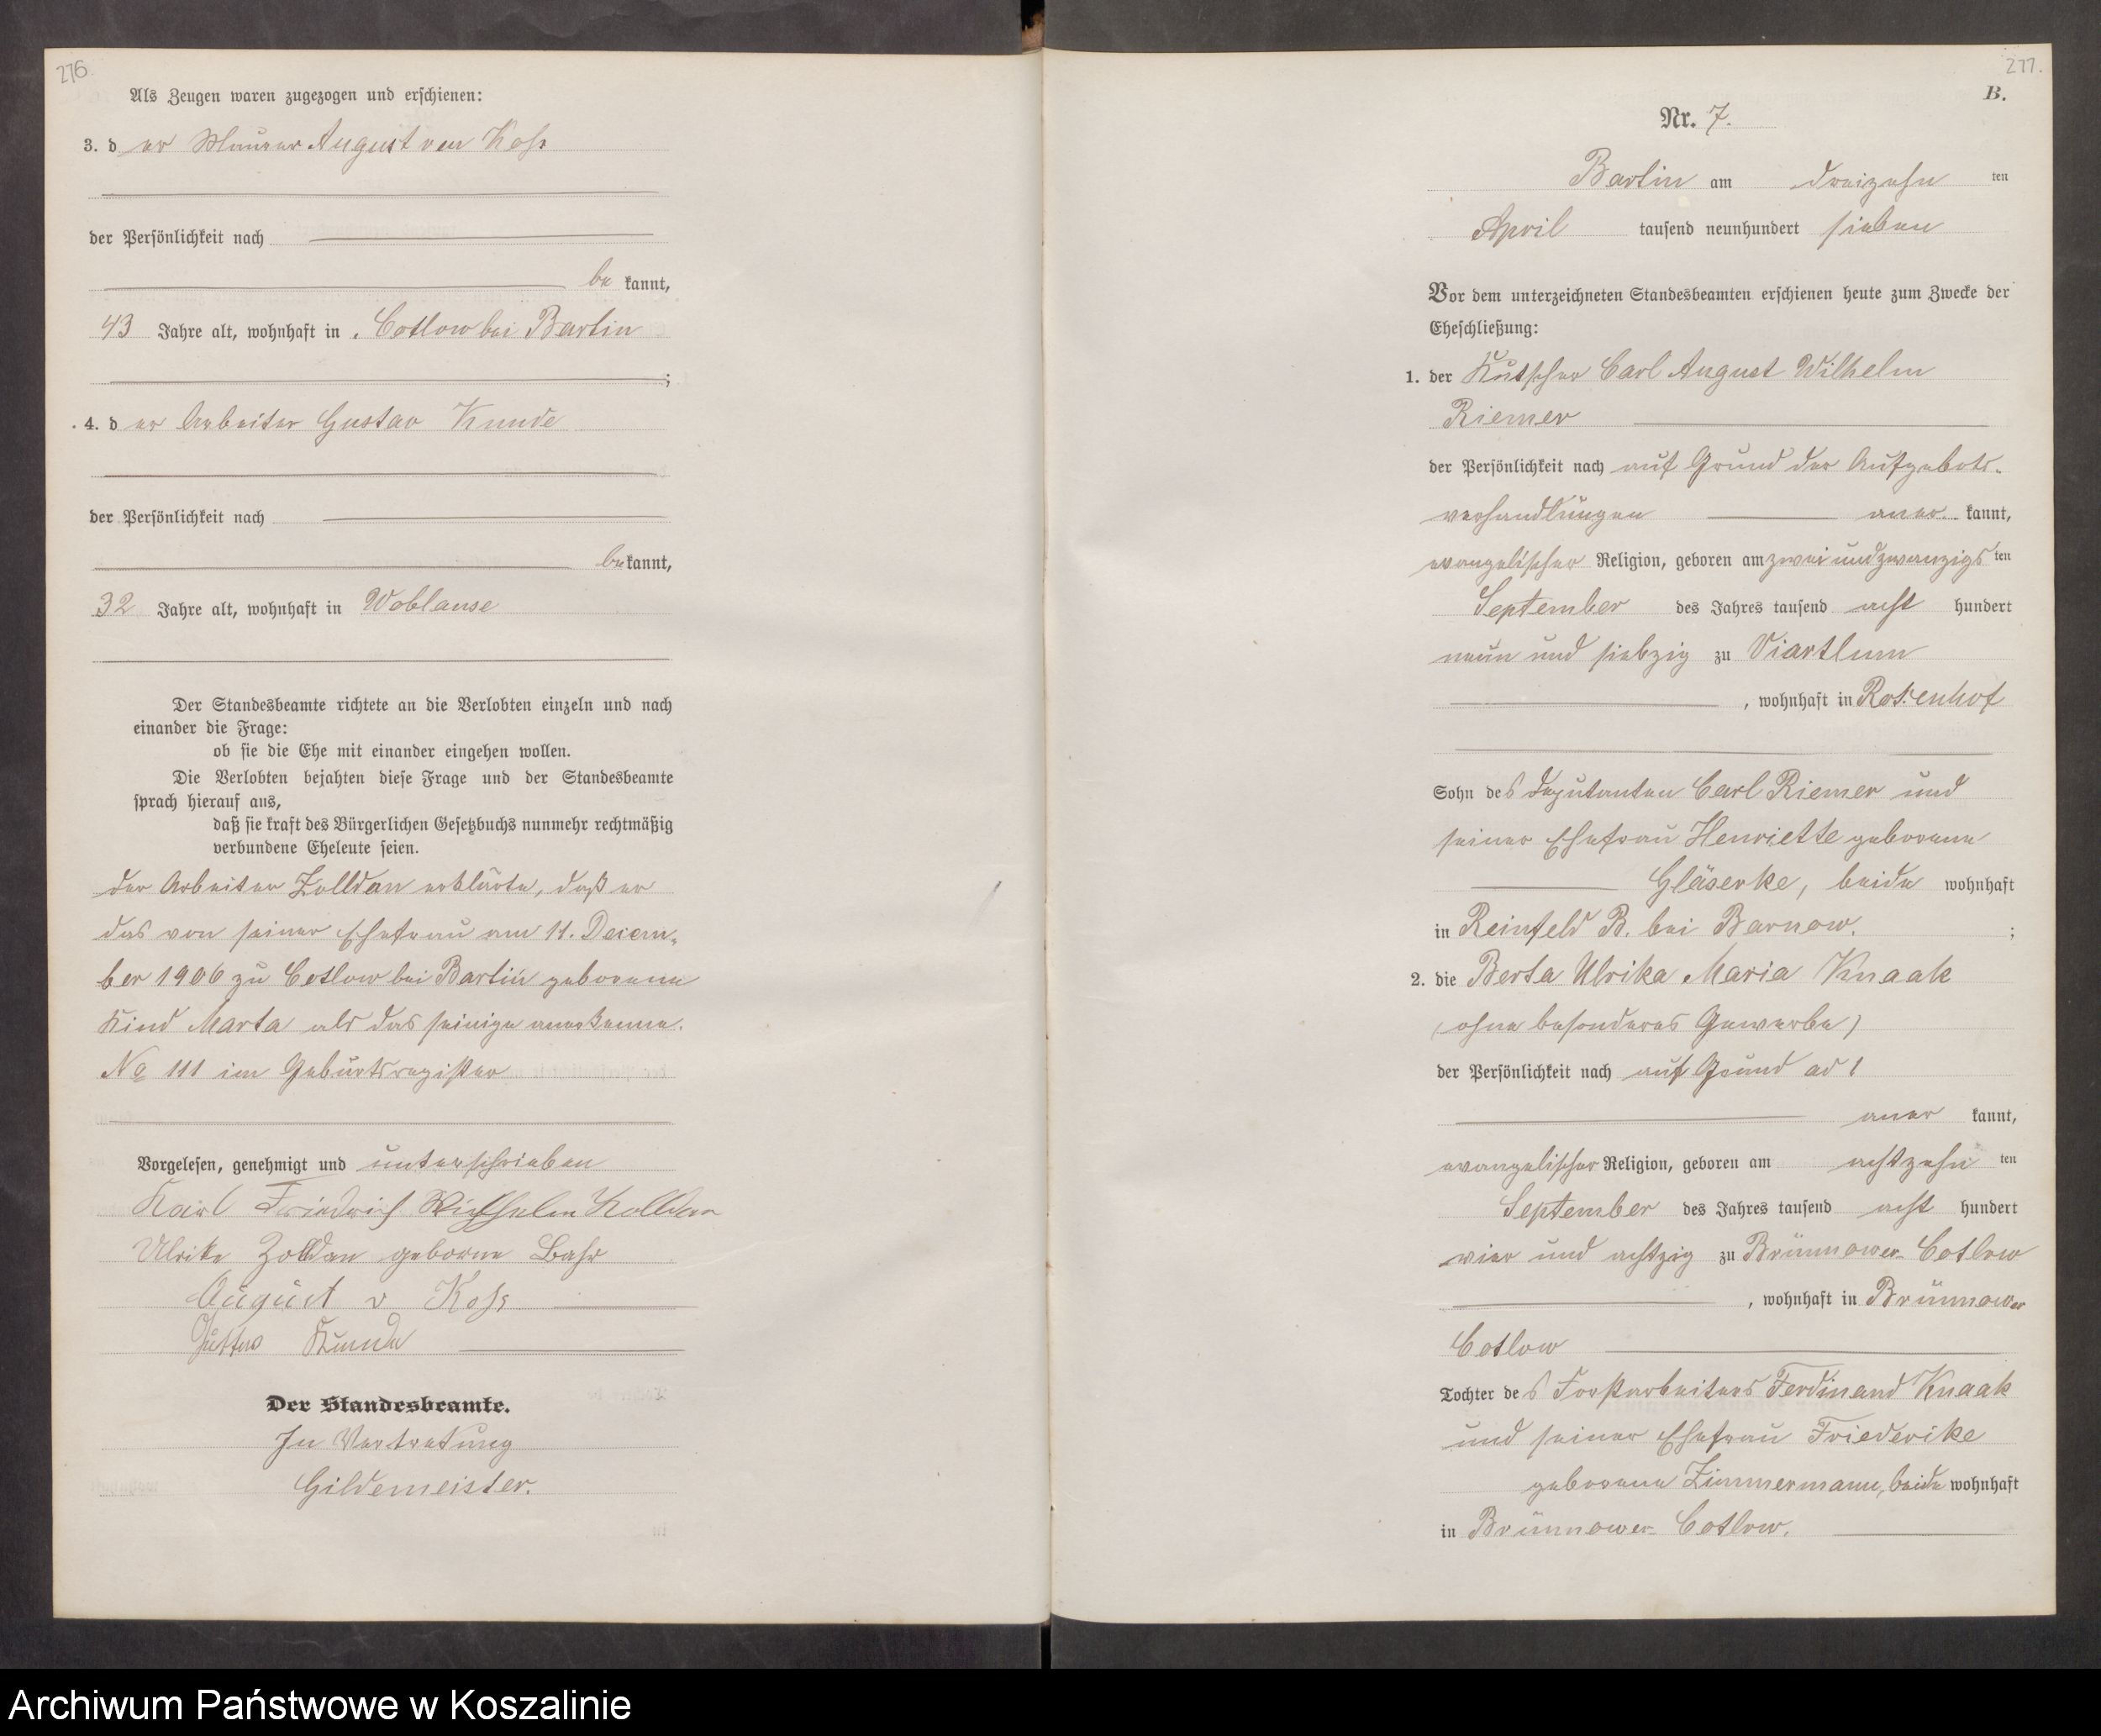 276.
Als Zeugen waren zugezogen und erschienen:
3. der Maurer August von Koss
der Persönlichkeit nach
bekannt,
43 Jahre alt, wohnhaft in Cotlow bei Bartin
;
4. der Arbeiter Gustav Kunde
der Persönlichkeit nach
bekannt,
32 Jahre alt, wohnhaft in Woblanse
Der Standesbeamte richtete an die Verlobten einzeln und nach
einander die Frage:
ob sie die Ehe mit einander eingehen wollen.
Die Verlobten bejahten diese Frage und der Standesbeamte
sprach hierauf aus,
daß sie kraft des Bürgerlichen Gesetzbuchs nunmehr rechtmäßig
verbundene Eheleute seien.
der Arbeiter Zolldan erklärte, daß er
das von seiner Ehefrau am 11. Decem-
ber 1906 zu Cotlow bei Bartin geborene
Kind Marta als das seinige anerkenne.
No 111 im Geburtsregister
Vorgelesen, genehmigt und unterschrieben
Karl Friedrich Wilhelm Zolldan
Ulrike Zolldan geborne Bahr
August v Koss
Gustav Kunde
Der Standesbeamte.
In Vertretung
Gildemeister.
277.
B.
Nr. 7.
Bartin am dreizehn ten
April tausend neunhundert sieben
Vor dem unterzeichneten Standesbeamten erschienen heute zum Zwecke der
Eheschließung:
1. der Kutscher Carl August Wilhelm
Riemer
der Persönlichkeit nach auf Grund der Aufgebots-
verhandlungen anerkannt,
evangelischer Religion, geboren am zwei und zwanzigsten
September des Jahres tausend acht hundert
neun und siebzig zu Viartlum
, wohnhaft in Rosenhof
Sohn des Deputanten Carl Riemer und
seiner Ehefrau Henriette geborene
Gläserke, beide wohnhaft
in Reinfeld B. bei Barnow. ;
2. die Berta Ulrika Maria Knaak
(ohne besonderes Gewerbe)
der Persönlichkeit nach auf Grund ad 1
anerkannt,
evangelischer Religion, geboren am achtzehn ten
September des Jahres tausend acht hundert
vier und achtzig zu Brünnower Cotlow
, wohnhaft in Brünnower
Cotlow
Tochter des Forstarbeiters Ferdinand Knaak
und seiner Ehefrau Friederike
geborene Zimmermann, beide wohnhaft
in Brünnower Cotlow.
Archiwum Państwowe w Koszalinie